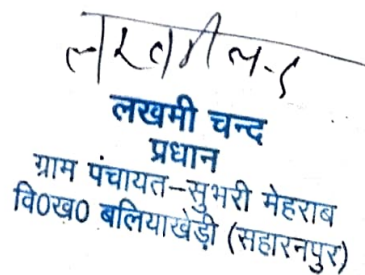 लखमीचन्द
लखमी चन्द
प्रधान
ग्राम पंचायत-सुभरी मेहराब
वि०ख० बलियाखेड़ी (सहारनपुर)